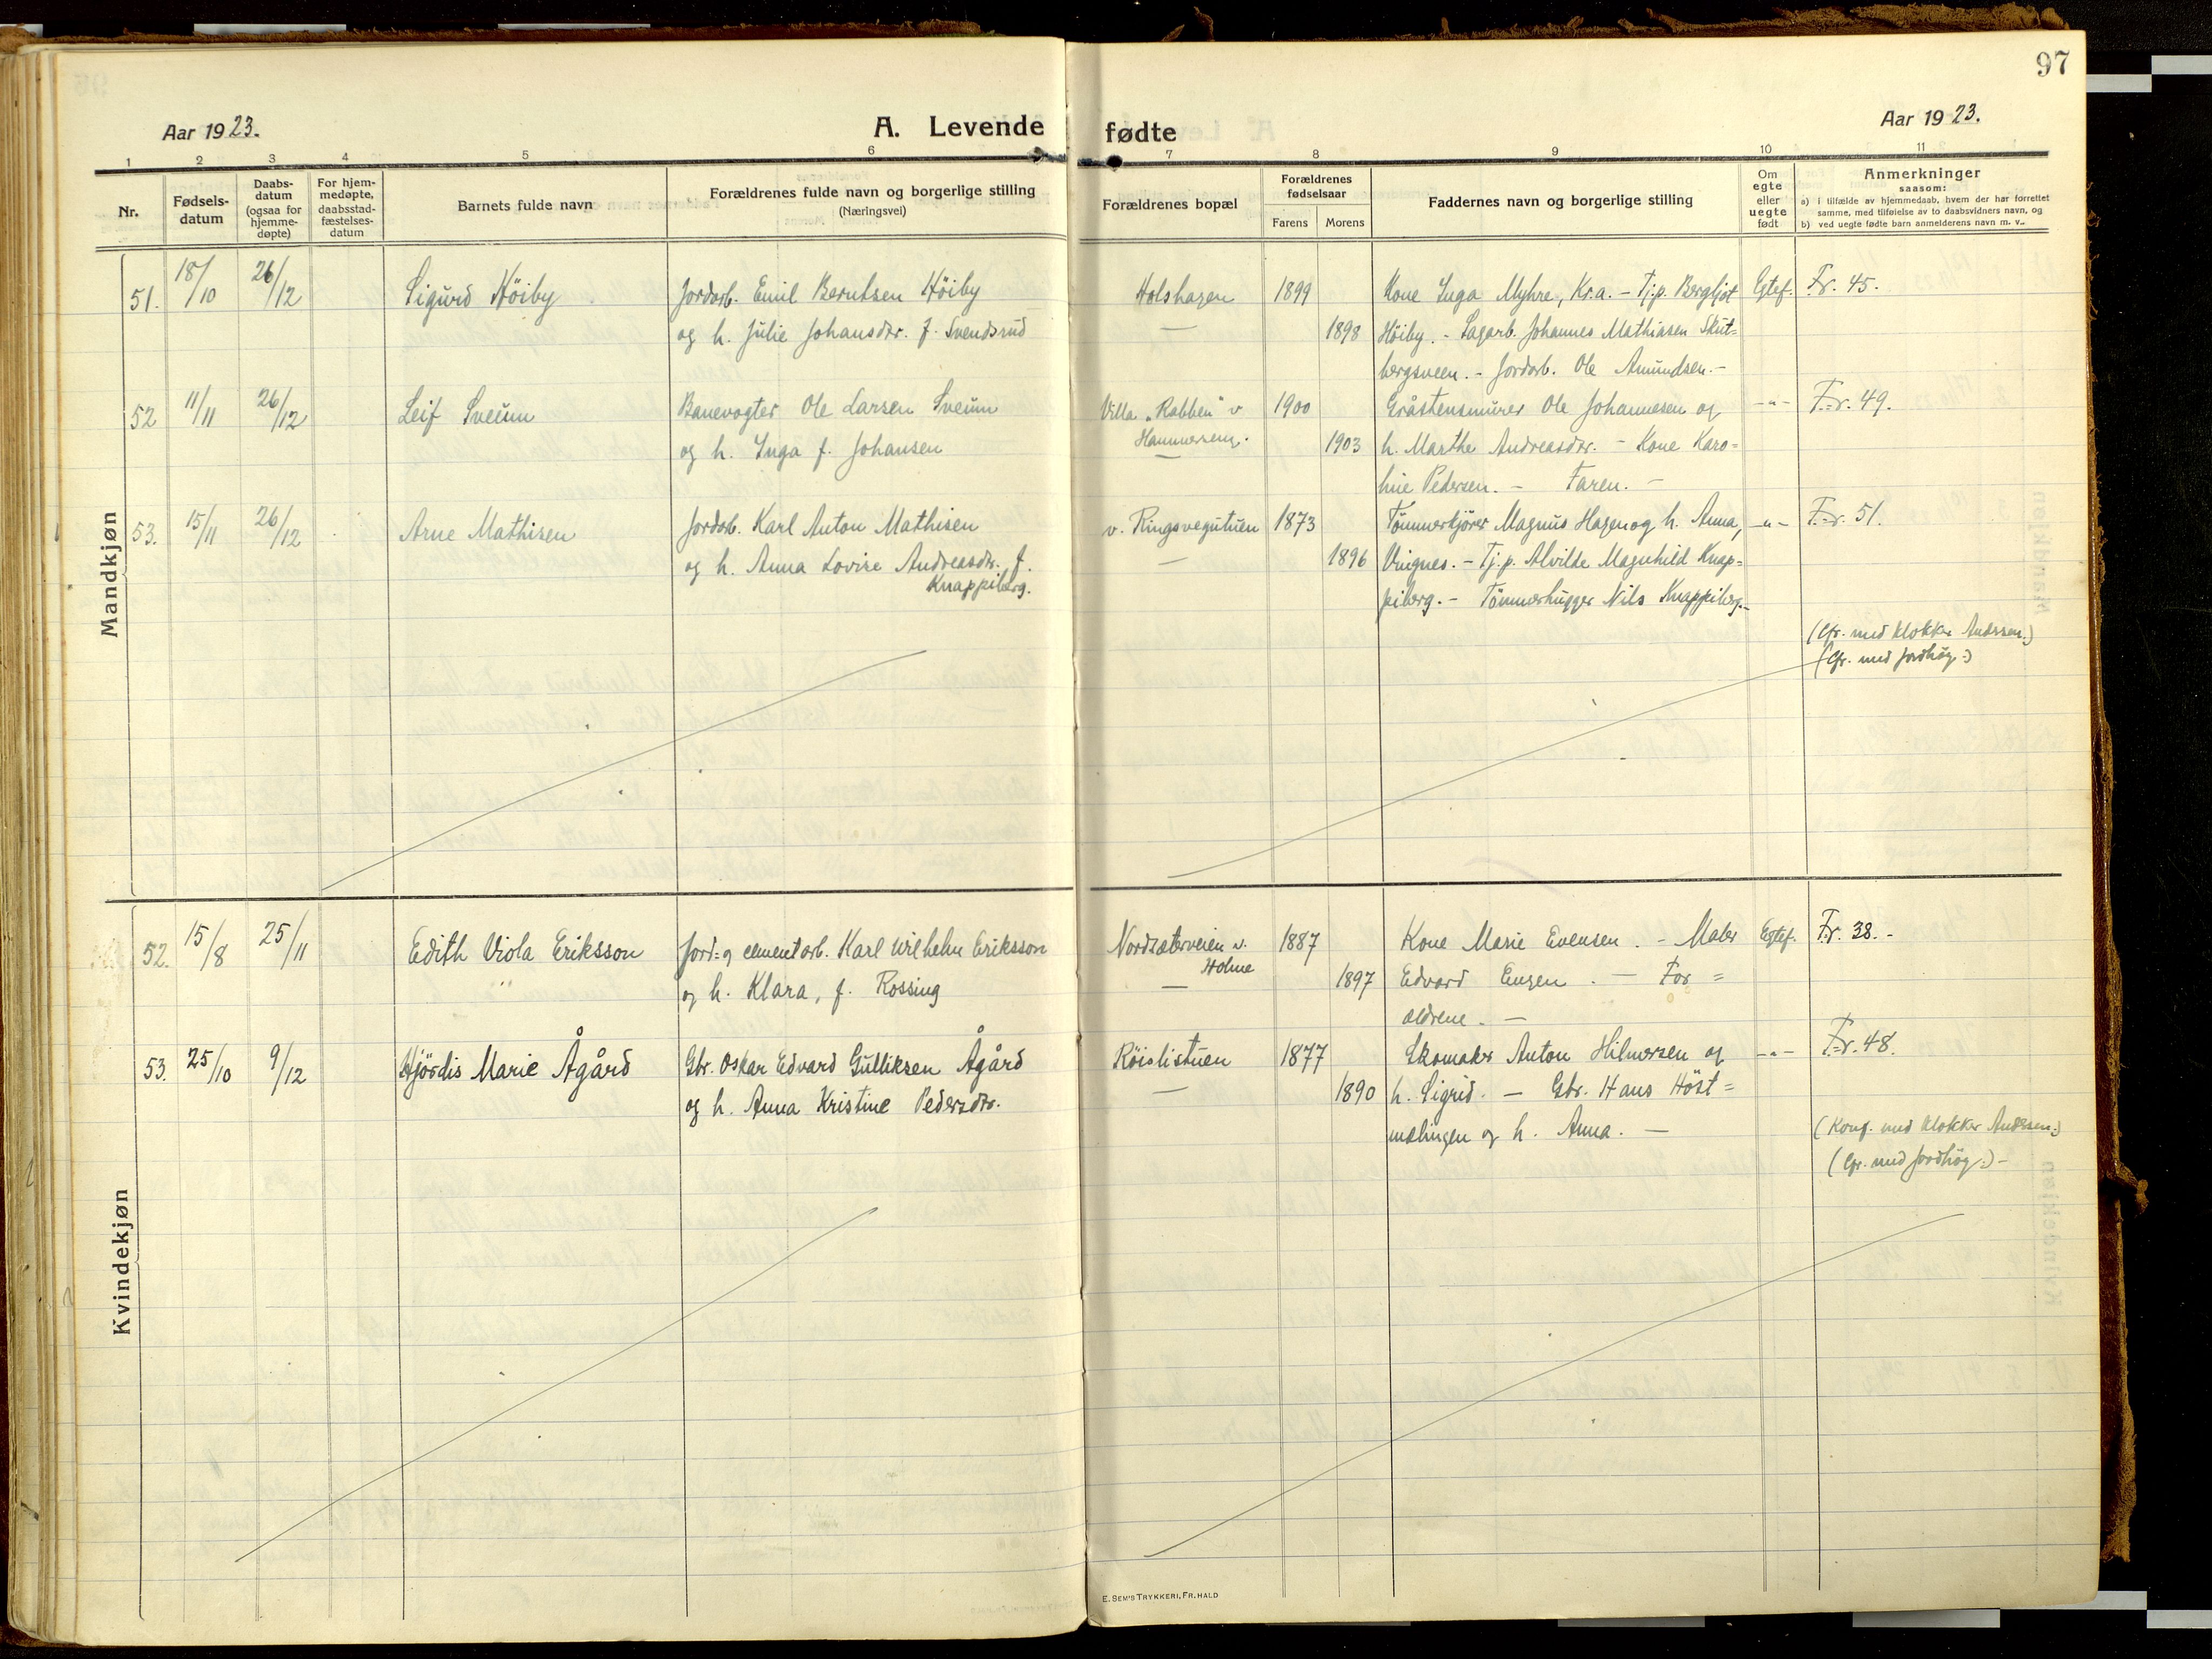 97
Aar 1923.
A. Levende fødte
Aar 1923.
1 2 3 4 5 6 7 8 9 10 11
Nr.
Fødsels-
datum
Daabs-
datum
(ogsaa for
hjemme-
døpte)
For hjem-
medøpte,
daabsstad-
fæstelses-
datum
Barnets fulde navn
Forældrenes fulde navn og borgerlige stilling
(Næringsvei)
Forældrenes bopæl
Forældrenes
fødselsaar
Farens Morens
Faddernes navn og borgerlige stilling
Om
egte
eller
uegte
født
Anmerkninger
saasom:
a) i tilfælde av hjemmedaab, hvem der har forrettet
samme, med tilføielse av to daabsvidners navn, og
b) ved uegte fødte barn anmelderens navn m. v..
Mandkjøn
51. 18/10 26/12 Sigurd Höiby Jordarb. Emil Berntsen Höiby Holshagen 1899 Kone Inga Myhre, Kr.a. - Tj.p. Bergljot Egtef. Fr. 45.
og h. Julie Johansdtr. f. Svendsrud — 1898 Höiby. - Sagarb. Johannes Mathiasen Skut=
bergsveen. - Jordarb. Ole Amundsen. -
52 11/11 26/12 Leif Sveum Banevogter Ole Larsen Sveum Villa „Rabben" v 1900 Gråstensmurer Ole Johannesen og -"- F.=r. 49.
og h. Inga f. Johansen Hammereng. 1903 h. Marthe Andreasdtr. - Kone Karo=
line Pedersen. - Faren. -
53. 15/11 26/12 Arne Mathisen Jordarb. Karl Anton Mathisen v. Ringsvegutuen 1873 Tömmerkjörer Magnus Hagen og h. Anna, -"- F.=r. 51.
og h. Anna Lovise Andreasdtr. f. — 1896 Vingnes. - Tj.p. Alvilde Magnhild Knap=
Knappiberg. piberg. - Tömmerhugger Nils Knappiberg. -
(Cfr. med klokker Andersen.)
(Cfr. med Jordhøg:)
Kvindekjøn
52. 15/8 25/11 Edith Viola Eriksson Jord= og cementarb. Karl Wilhelm Eriksson Nordsæterveien v. 1887 Kone Marie Evensen. - Maler Egtef. Fr. 38. -
Holme
og h. Klara, f. Rossing — 1897 Edvard Engen. - For=
ældrene. -
53. 25/10 9/12 Hjördis Marie Ågård Gbr. Oskar Edvard Gulliksen Ågård Röislistuen 1877 Skomaker Anton Hilmersen og -"- F.=r. 48.
og h. Anna Kristine Pedersdtr. — 1890 h. Sigrid. - Gbr. Hans Höst=
mælingen og h. Anna. -
(Konf. med klokker Andersen:)
(Cfr. med Jordhøg:) -
E. SEM'S TRYKKERI, FR.HALD